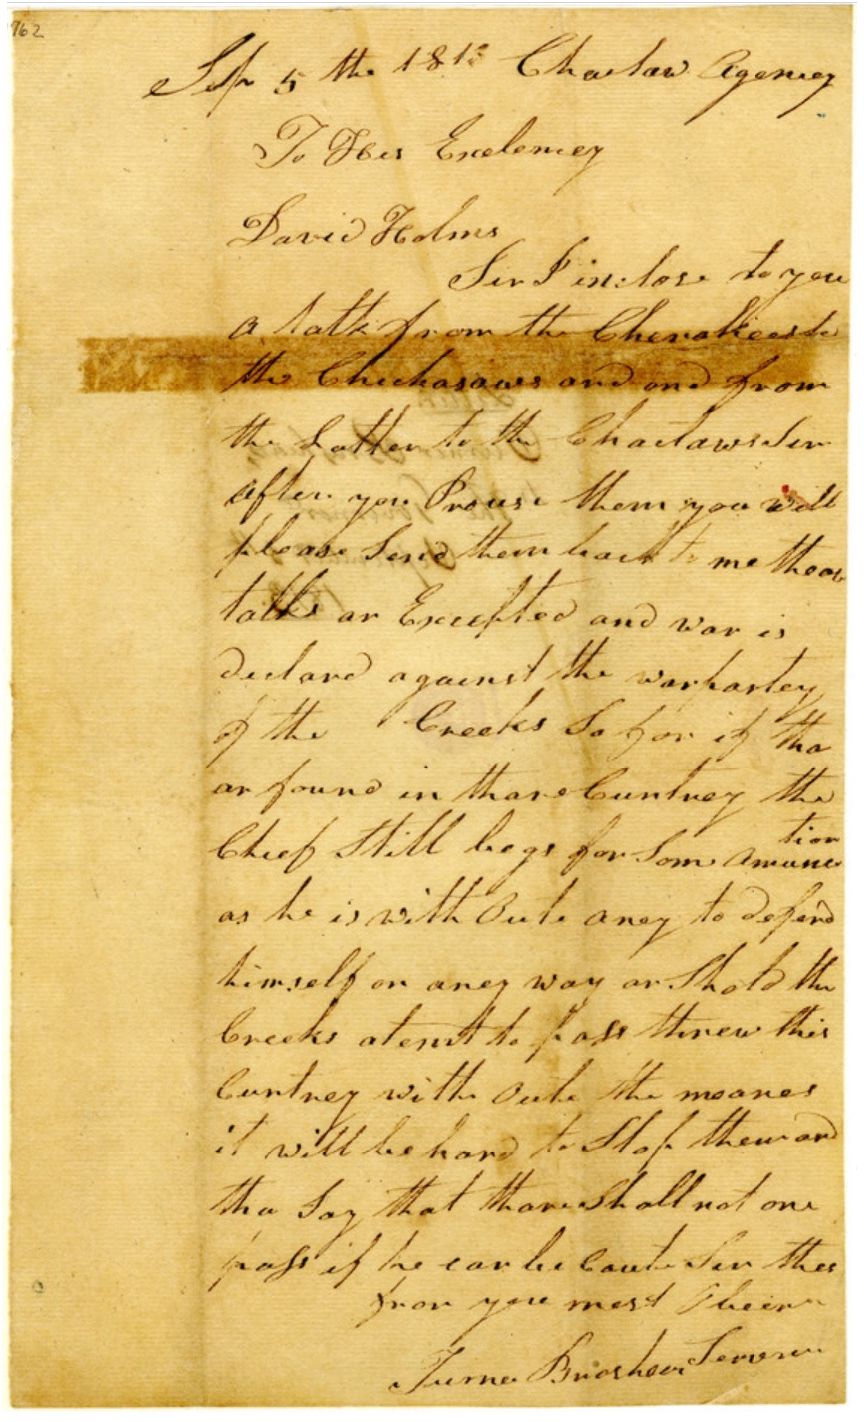 762
Sep 5 the 181 Chactaw Agencey
To His Excelencey
David Holms
Sir I inclose to you
a talk from the Cherokees to
the Chickasaws and one from
the Latter to the Chactaws Sir
after you Preuse them you will
please Send them back to me
talks ar Excepted and war is
declard against the warpartey
of the Creeks So for if tha
ar found in thare Cuntrey the
Chief Still begs for Some Amunetion
as he is with Oute aney to defend
himself on aney way or Shold the
Creeks atemt to pass threw this
Cuntrey with Oute the meanes
it will be hard to Stop them and
tha Say that thare Shall not one
pass if he can be Caute Sir
from you most
Turner Brashear